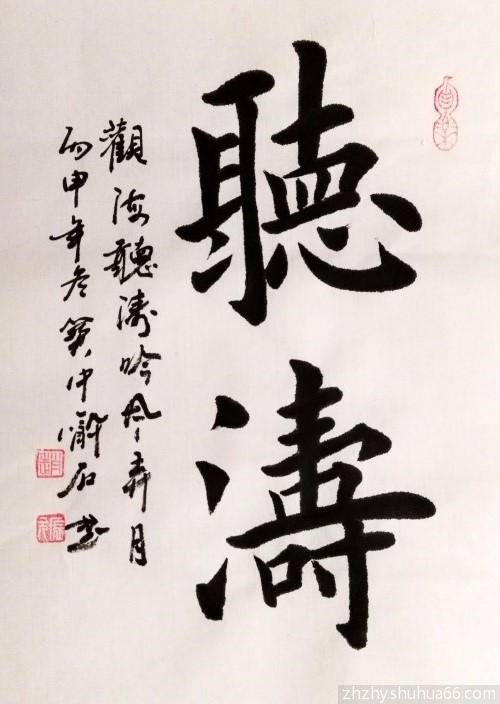 聽
濤
觀海聽濤吟風弄月
丙申年冬賀中
石書
zhzhy.shuhua66.com